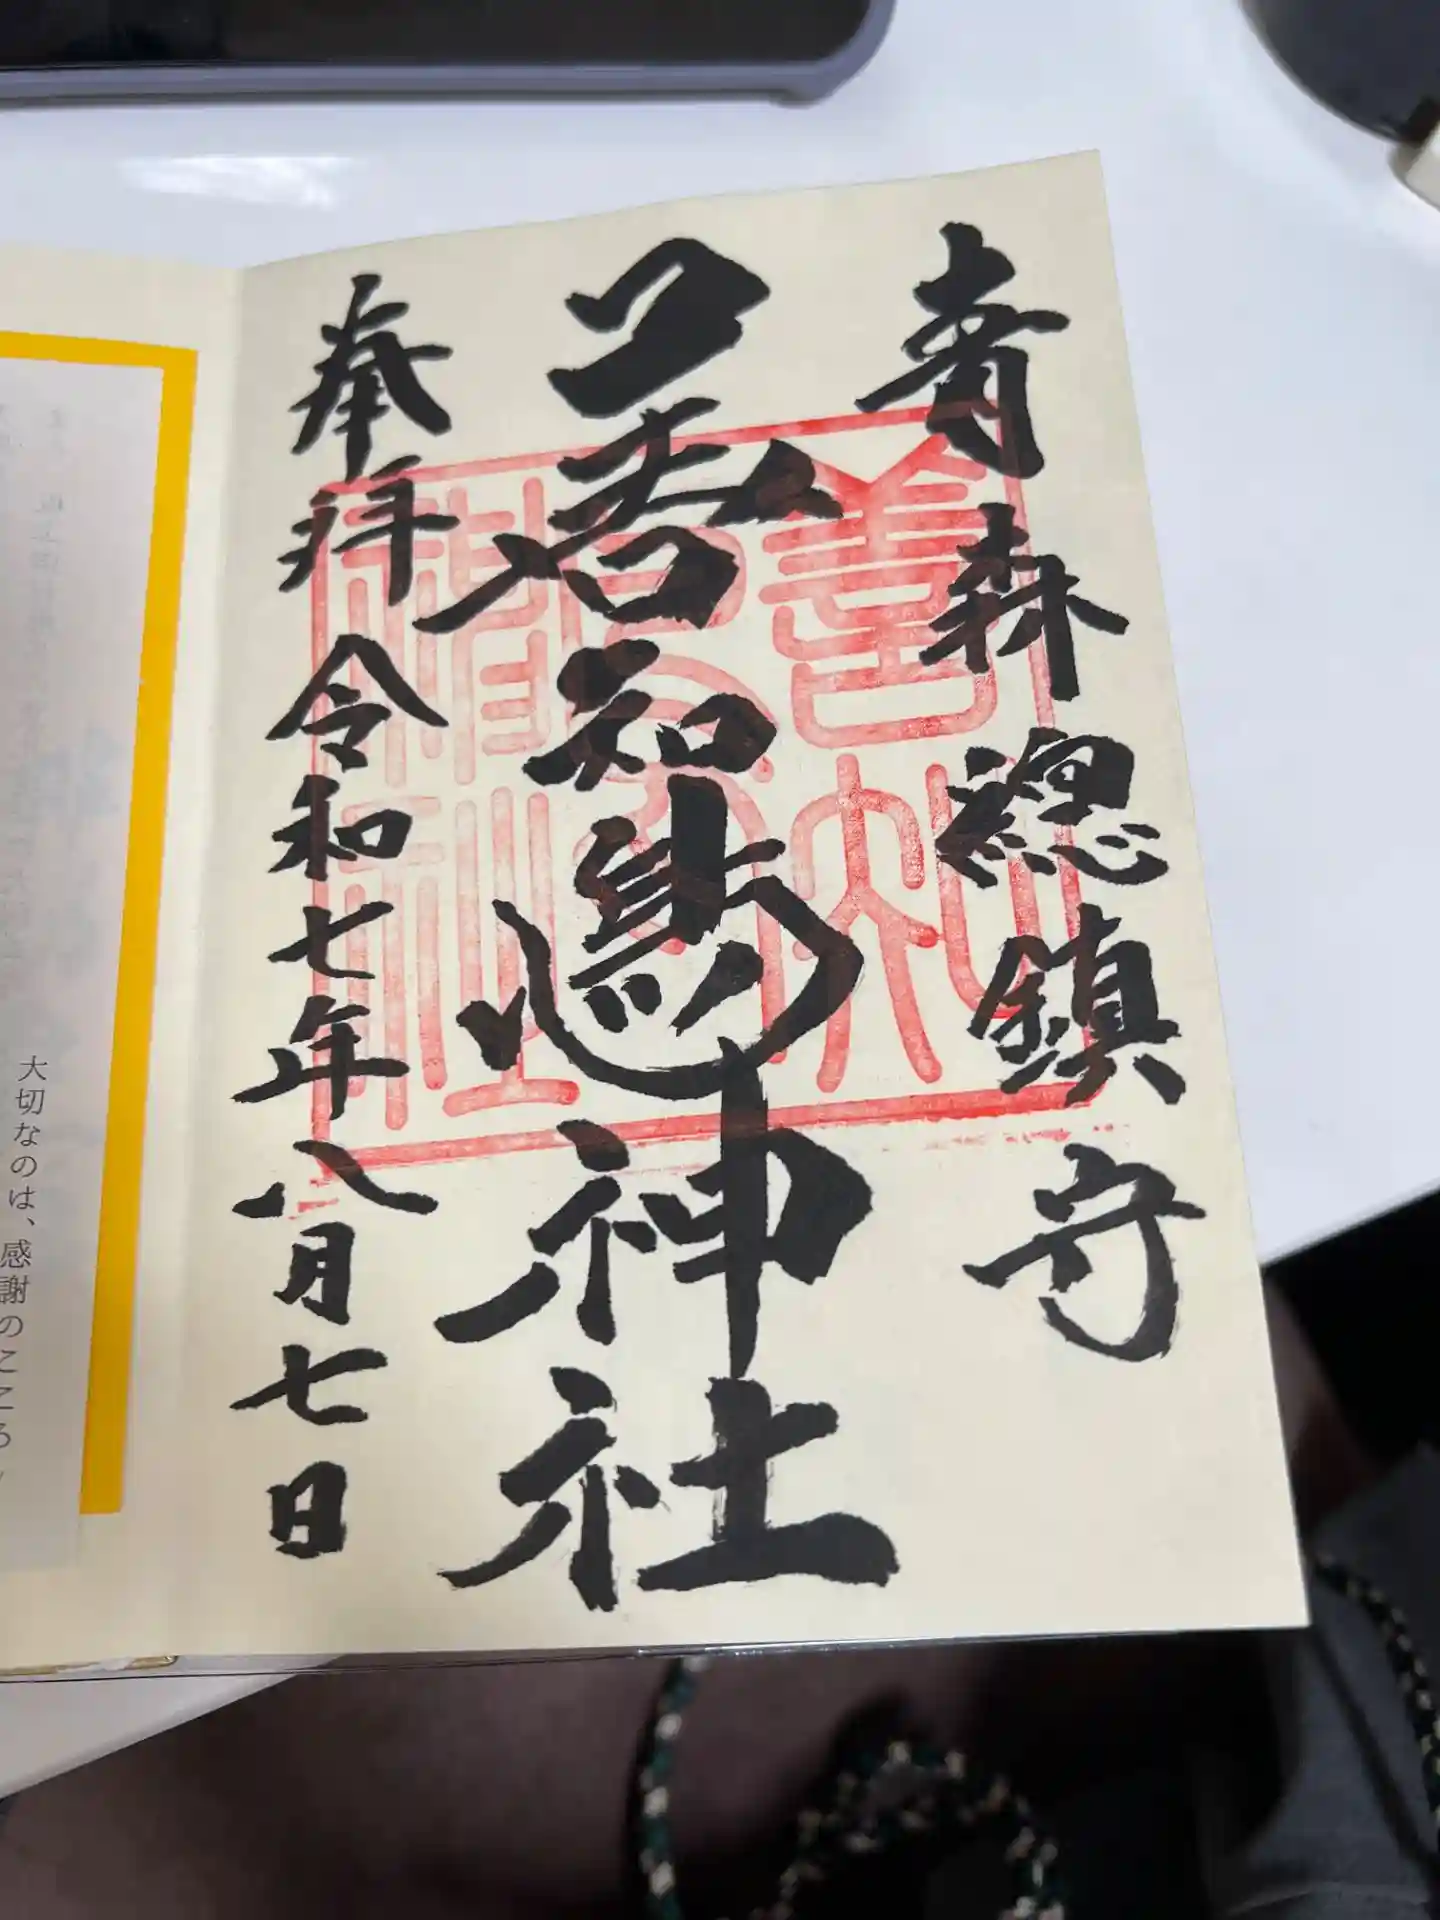 青森總鎮守
善知鳥神社
奉拝 令和七年八月七日
大切なのは、
感謝のこころ